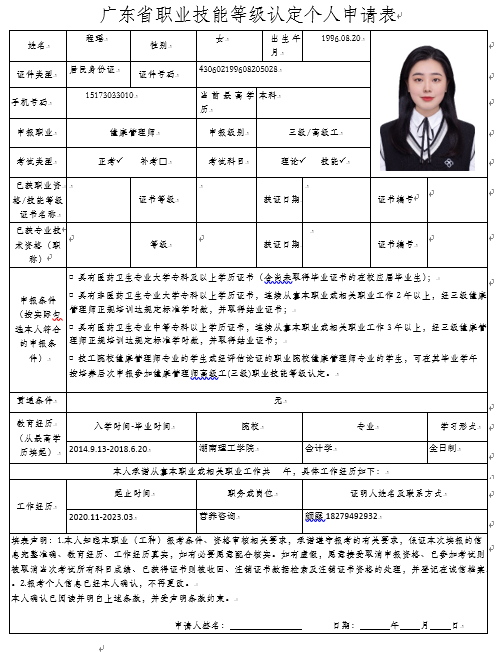 广东省职业技能等级认定个人申请表
姓名 程瑶 性别 女 出生年月 1996.08.20
证件类型 居民身份证 证件号码 430602199608205028
手机号码 15173033010 当前最高学历 本科
申报职业 健康管理师 申报级别 三级/高级工
考试类型 正考✓ 补考□ 考试科目 理论✓ 技能✓
已获职业资格/技能等级证书名称 证书等级 获证日期 证书编号
已获专业技术资格（职称） 等级 获证日期 证书编号
申报条件（按实际勾选本人符合的申报条件）
□ 具有医药卫生专业大学专科及以上学历证书（含尚未取得毕业证书的在校应届毕业生）；
□ 具有非医药卫生专业大学专科以上学历证书，连续从事本职业或相关职业工作2年以上，经三级健康
管理师正规培训达规定标准学时数，并取得结业证书；
□ 具有医药卫生专业中等专科以上学历证书，连续从事本职业或相关职业工作3年以上，经三级健康管
理师正规培训达规定标准学时数，并取得结业证书；
□ 技工院校健康管理师专业的学生或经评估论证的职业院校健康管理师专业的学生，可在其毕业学年
按培养层次申报参加健康管理师高级工(三级)职业技能等级认定。
贯通条件 无
教育经历（从最高学历填起） 入学时间-毕业时间 院校 专业 学习形式
2014.9.13-2018.6.20 湖南理工学院 会计学 全日制
本人承诺从事本职业或相关职业工作共 年，具体工作经历如下：
工作经历 起止时间 职务或岗位 证明人姓名及联系方式
2020.11-2023.03 营养咨询 18279492932
填表声明：1.本人知晓本职业（工种）报考条件、资格审核相关要求，承诺遵守报考的有关要求，保证本次填报的信
息完整准确、教育经历、工作经历真实，如有必要愿意配合核实。如有虚假，愿意接受取消申报资格、已参加考试则
被取消当次考试所有科目成绩、已获得证书则被收回、注销证书数据检索及注销证书资格的处理，并登记在诚信档案
。2.报考个人信息已经本人确认，不再更改。
本人确认已阅读并明白上述条款，并受声明条款约束。
申请人签名： 日期： 年 月 日